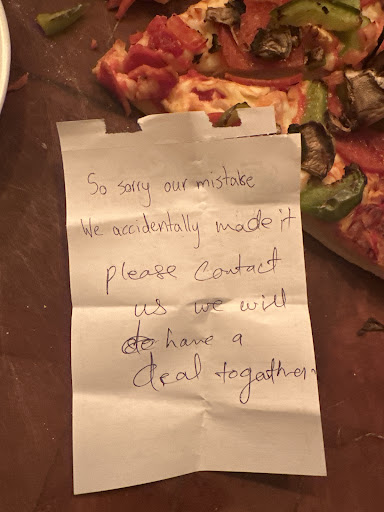 So sorry our mistake
We accidentally made it
please contact
us we will
do have a
deal togather